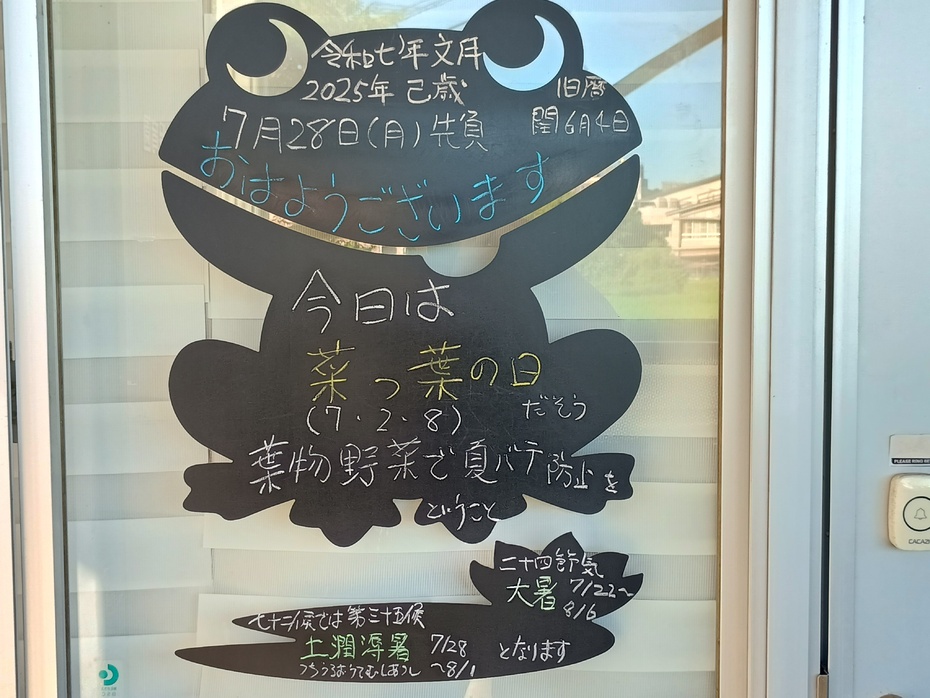 令和七年文月
2025年 己歳
旧暦
7月28日(月)先負
閏6月4日
おはようございます
今日は
菜っ葉の日
(7・2・8)
だそう
葉物野菜で夏バテ防止を
ということ
二十四節気
大暑 7/22~
8/6
七十二候では第三十五候
土潤溽暑 7/28
つちうるおうてむしあつし ~8/1
となります
PLEASE RING